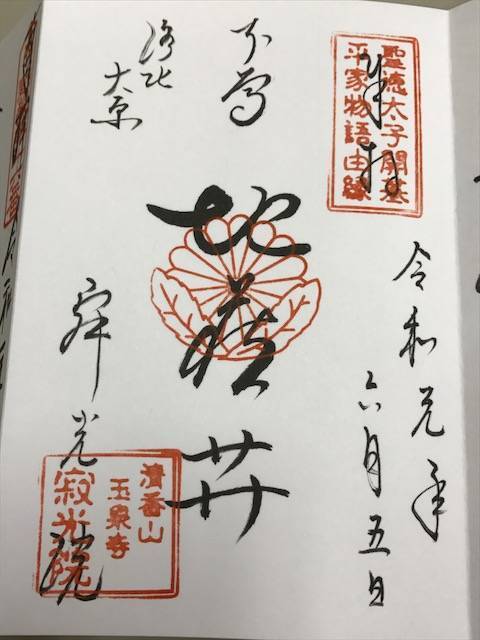 聖徳太子開基
平家物語由縁
奉拝
令和元年
六月五日
地蔵𦬇
洛北
大原
寂光院
清香山
玉泉寺
寂光院